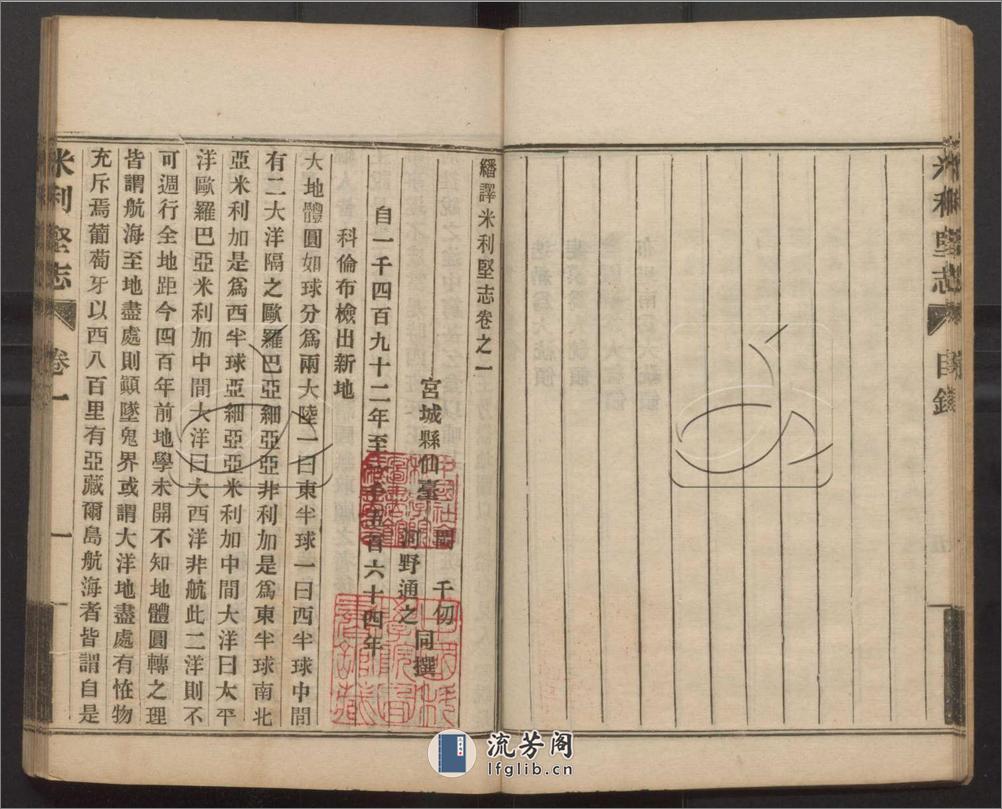 米利堅志
目錄
繙譯米利堅志卷之一
宮城縣仙臺
岡 千仞
河野通之
同撰
自一千四百九十二年至一千五百六十四年
科倫布檢出新地
大地體圓如球分爲兩大陸一曰東半球一曰西半球中間
有二大洋隔之歐羅巴亞細亞亞非利加是爲東半球南北
亞米利加是爲西半球亞細亞亞米利加中間大洋曰太平
洋歐羅巴亞米利加中間大洋曰大西洋非航此二洋則不
可週行全地距今四百年前地學未開不知地體圓轉之理
皆謂航海至地盡處則顚墜鬼界或謂大洋地盡處有恠物
充斥焉葡萄牙以西八百里有亞藏爾島航海者皆謂自是
米利堅志
卷一
一
流芳阁
lfglib.cn